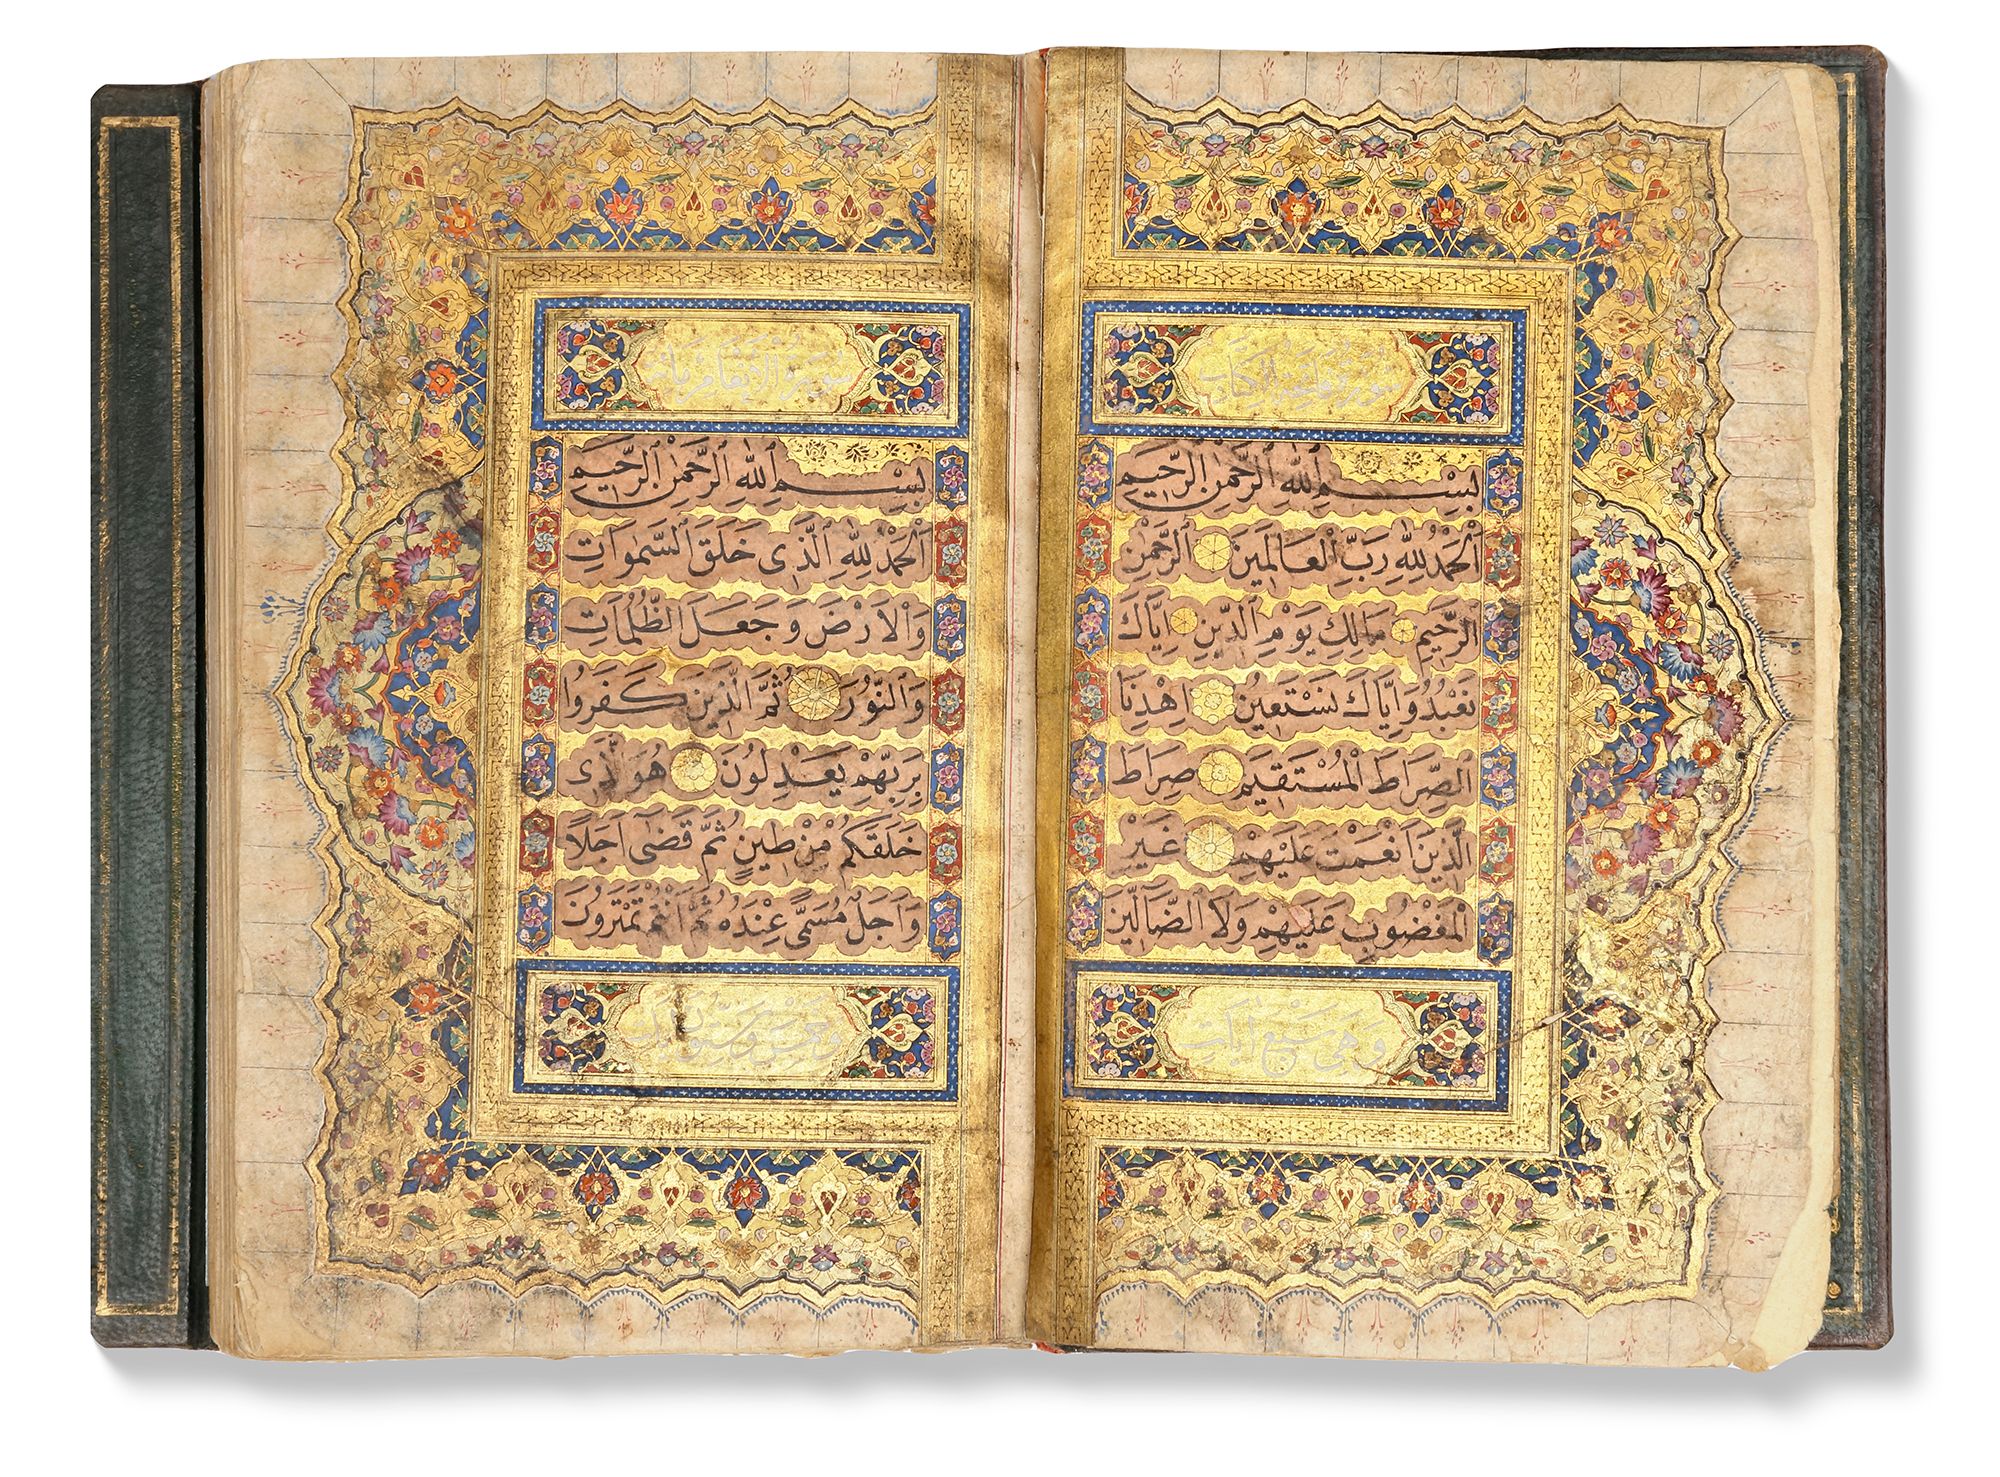 سورة فاتحة الكتاب
بِسْمِ اللّٰهِ الرَّحْمٰنِ الرَّحِيمِ
اَلْحَمْدُ لِلّٰهِ رَبِّ الْعَالَمِينَ الرَّحْمٰنِ
الرَّحِيمِ مَالِكِ يَوْمِ الدِّينِ اِيَّاكَ
نَعْبُدُ وَاِيَّاكَ نَسْتَعِينُ اِهْدِنَا
الصِّرَاطَ الْمُسْتَقِيمَ صِرَاطَ
الَّذِينَ اَنْعَمْتَ عَلَيْهِمْ غَيْرِ
الْمَغْضُوبِ عَلَيْهِمْ وَلَا الضَّالِّينَ
وهي سبع آيات
سورة الانعام مائة
بِسْمِ اللّٰهِ الرَّحْمٰنِ الرَّحِيمِ
اَلْحَمْدُ لِلّٰهِ الَّذِى خَلَقَ السَّمٰوَاتِ
وَالْاَرْضَ وَجَعَلَ الظُّلُمَاتِ
وَالنُّورَ ثُمَّ الَّذِينَ كَفَرُوا
بِرَبِّهِمْ يَعْدِلُونَ هُوَ الَّذِى
خَلَقَكُمْ مِنْ طِينٍ ثُمَّ قَضٰى اَجَلًا
وَاَجَلٌ مُسَمًّى عِنْدَهُ ثُمَّ اَنْتُمْ تَمْتَرُونَ
وخمس وستون